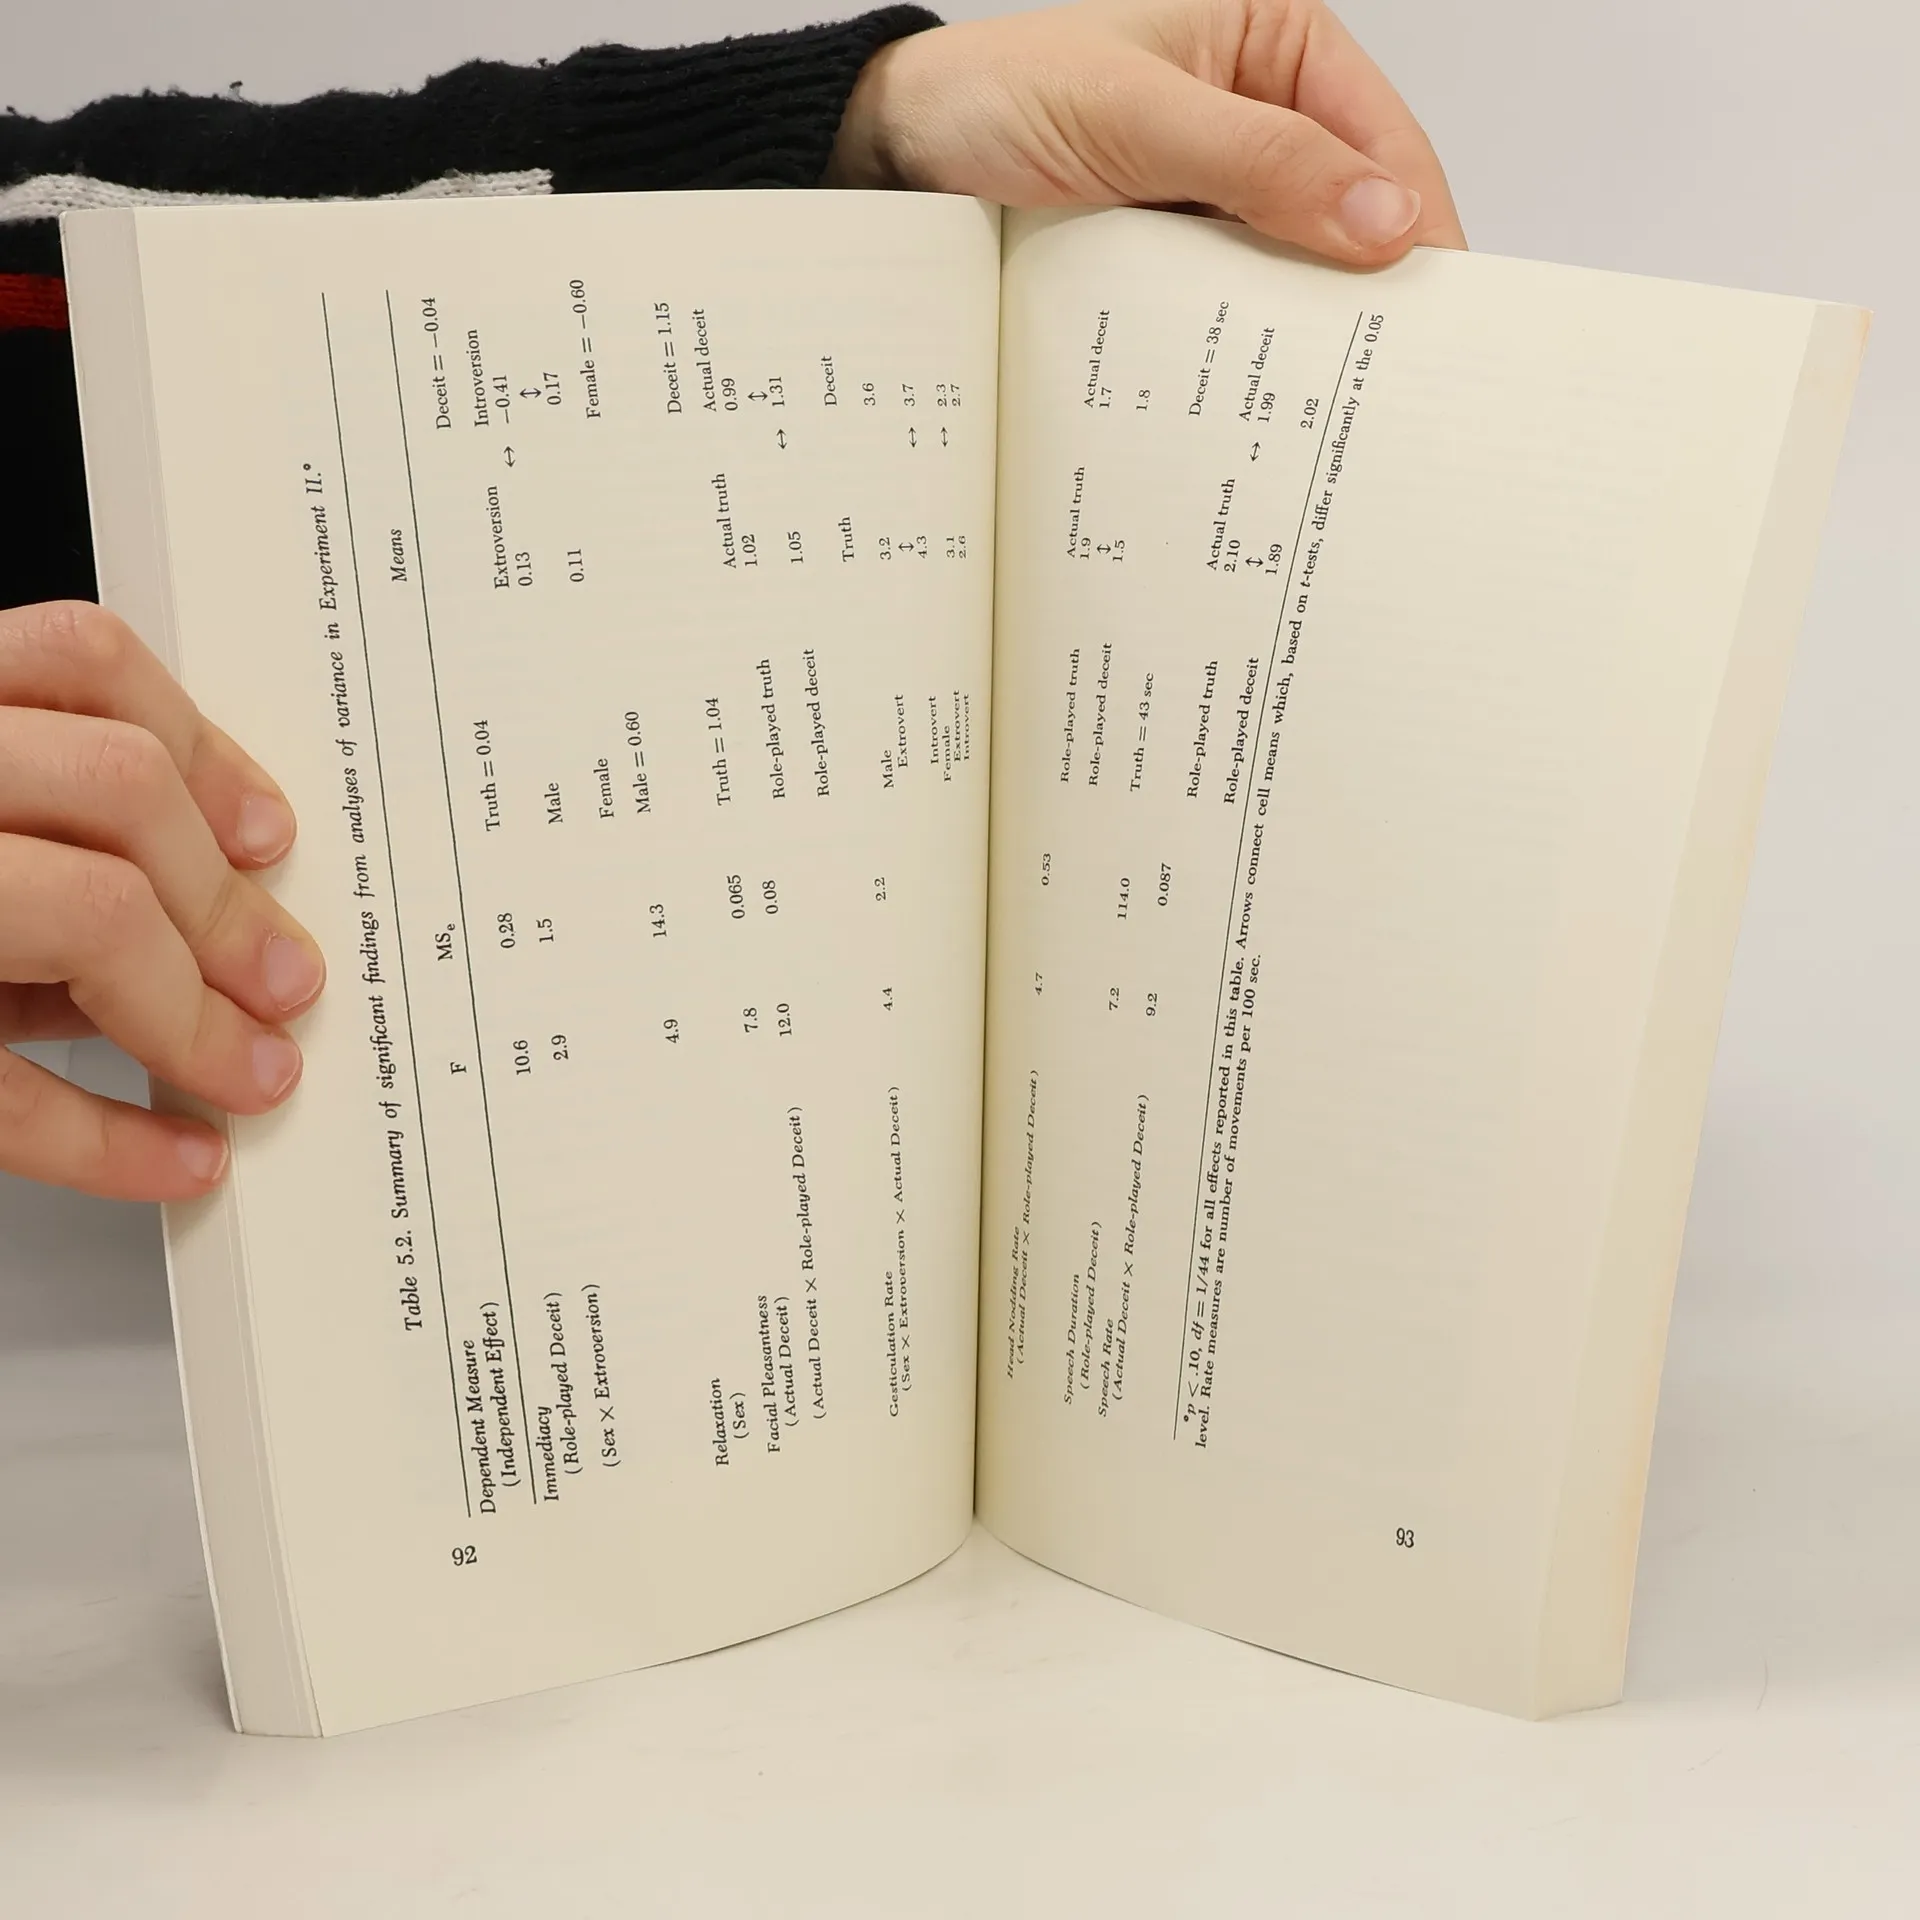 92
Table 5.2. Summary of significant findings from analyses of variance in Experiment II.*
Dependent Measure
(Independent Effect) F MSe Means
Immediacy
(Role-played Deceit) 10.6 0.28 Truth = 0.04 Deceit = −0.04
(Sex × Extroversion) 2.9 1.5 Extroversion Introversion
Male 0.13 ↔ −0.41
↕
Female 0.11 0.17
Relaxation
(Sex) 4.9 14.3 Male = 0.60 Female = −0.60
Facial Pleasantness
(Actual Deceit) 7.8 0.065 Truth = 1.04 Deceit = 1.15
(Actual Deceit × Role-played Deceit) 12.0 0.08 Actual truth Actual deceit
Role-played truth 1.02 0.99
↕
Role-played deceit 1.05 ↔ 1.31
Gesticulation Rate
(Sex × Extroversion × Actual Deceit) 4.4 2.2 Truth Deceit
Male
Extrovert 3.2 3.6
↕
Introvert 4.3 ↔ 3.7
Female
Extrovert 3.1 ↔ 2.3
Introvert 2.6 2.7
Head Nodding Rate
(Actual Deceit × Role-played Deceit) 4.7 0.53 Actual truth Actual deceit
Role-played truth 1.9 1.7
↕
Role-played deceit 1.5 1.8
Speech Duration
(Role-played Deceit) 7.2 114.0 Truth = 43 sec Deceit = 38 sec
Speech Rate
(Actual Deceit × Role-played Deceit) 9.2 0.087 Actual truth Actual deceit
Role-played truth 2.10 ↔ 1.99
↕
Role-played deceit 1.89 2.02
*p < .10, df = 1/44 for all effects reported in this table. Arrows connect cell means which, based on t-tests, differ significantly at the 0.05
level. Rate measures are number of movements per 100 sec.
93